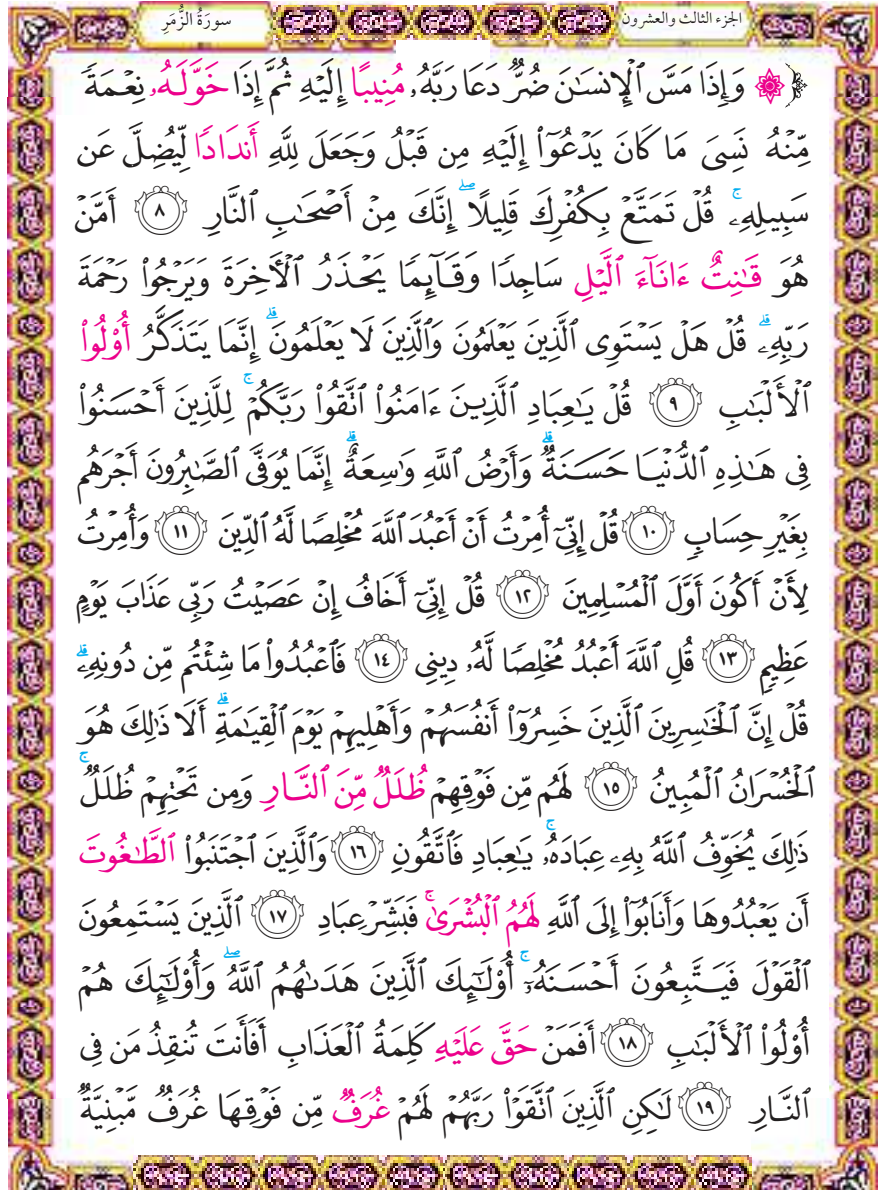 سورَةُ الزُّمَرِ
الجزء الثالث والعشرون
۞ وَإِذَا مَسَّ ٱلْإِنسَٰنَ ضُرٌّ دَعَا رَبَّهُۥ مُنِيبًا إِلَيْهِ ثُمَّ إِذَا خَوَّلَهُۥ نِعْمَةً
مِّنْهُ نَسِىَ مَا كَانَ يَدْعُوٓا۟ إِلَيْهِ مِن قَبْلُ وَجَعَلَ لِلَّهِ أَندَادًا لِّيُضِلَّ عَن
سَبِيلِهِۦ ۚ قُلْ تَمَتَّعْ بِكُفْرِكَ قَلِيلًا ۖ إِنَّكَ مِنْ أَصْحَٰبِ ٱلنَّارِ ﴿٨﴾ أَمَّنْ
هُوَ قَٰنِتٌ ءَانَآءَ ٱلَّيْلِ سَاجِدًا وَقَآئِمًا يَحْذَرُ ٱلْءَاخِرَةَ وَيَرْجُوا۟ رَحْمَةَ
رَبِّهِۦ ۗ قُلْ هَلْ يَسْتَوِى ٱلَّذِينَ يَعْلَمُونَ وَٱلَّذِينَ لَا يَعْلَمُونَ ۗ إِنَّمَا يَتَذَكَّرُ أُو۟لُوا۟
ٱلْأَلْبَٰبِ ﴿٩﴾ قُلْ يَٰعِبَادِ ٱلَّذِينَ ءَامَنُوا۟ ٱتَّقُوا۟ رَبَّكُمْ ۚ لِلَّذِينَ أَحْسَنُوا۟
فِى هَٰذِهِ ٱلدُّنْيَا حَسَنَةٌ ۗ وَأَرْضُ ٱللَّهِ وَٰسِعَةٌ ۗ إِنَّمَا يُوَفَّى ٱلصَّٰبِرُونَ أَجْرَهُم
بِغَيْرِ حِسَابٍ ﴿١٠﴾ قُلْ إِنِّىٓ أُمِرْتُ أَنْ أَعْبُدَ ٱللَّهَ مُخْلِصًا لَّهُ ٱلدِّينَ ﴿١١﴾ وَأُمِرْتُ
لِأَنْ أَكُونَ أَوَّلَ ٱلْمُسْلِمِينَ ﴿١٢﴾ قُلْ إِنِّىٓ أَخَافُ إِنْ عَصَيْتُ رَبِّى عَذَابَ يَوْمٍ
عَظِيمٍ ﴿١٣﴾ قُلِ ٱللَّهَ أَعْبُدُ مُخْلِصًا لَّهُۥ دِينِى ﴿١٤﴾ فَٱعْبُدُوا۟ مَا شِئْتُم مِّن دُونِهِۦ ۗ
قُلْ إِنَّ ٱلْخَٰسِرِينَ ٱلَّذِينَ خَسِرُوٓا۟ أَنفُسَهُمْ وَأَهْلِيهِمْ يَوْمَ ٱلْقِيَٰمَةِ ۗ أَلَا ذَٰلِكَ هُوَ
ٱلْخُسْرَانُ ٱلْمُبِينُ ﴿١٥﴾ لَهُم مِّن فَوْقِهِمْ ظُلَلٌ مِّنَ ٱلنَّارِ وَمِن تَحْتِهِمْ ظُلَلٌ ۚ
ذَٰلِكَ يُخَوِّفُ ٱللَّهُ بِهِۦ عِبَادَهُۥ ۚ يَٰعِبَادِ فَٱتَّقُونِ ﴿١٦﴾ وَٱلَّذِينَ ٱجْتَنَبُوا۟ ٱلطَّٰغُوتَ
أَن يَعْبُدُوهَا وَأَنَابُوٓا۟ إِلَى ٱللَّهِ لَهُمُ ٱلْبُشْرَىٰ ۚ فَبَشِّرْ عِبَادِ ﴿١٧﴾ ٱلَّذِينَ يَسْتَمِعُونَ
ٱلْقَوْلَ فَيَتَّبِعُونَ أَحْسَنَهُۥٓ ۚ أُو۟لَٰٓئِكَ ٱلَّذِينَ هَدَىٰهُمُ ٱللَّهُ ۖ وَأُو۟لَٰٓئِكَ هُمْ
أُو۟لُوا۟ ٱلْأَلْبَٰبِ ﴿١٨﴾ أَفَمَنْ حَقَّ عَلَيْهِ كَلِمَةُ ٱلْعَذَابِ أَفَأَنتَ تُنقِذُ مَن فِى
ٱلنَّارِ ﴿١٩﴾ لَٰكِنِ ٱلَّذِينَ ٱتَّقَوْا۟ رَبَّهُمْ لَهُمْ غُرَفٌ مِّن فَوْقِهَا غُرَفٌ مَّبْنِيَّةٌ